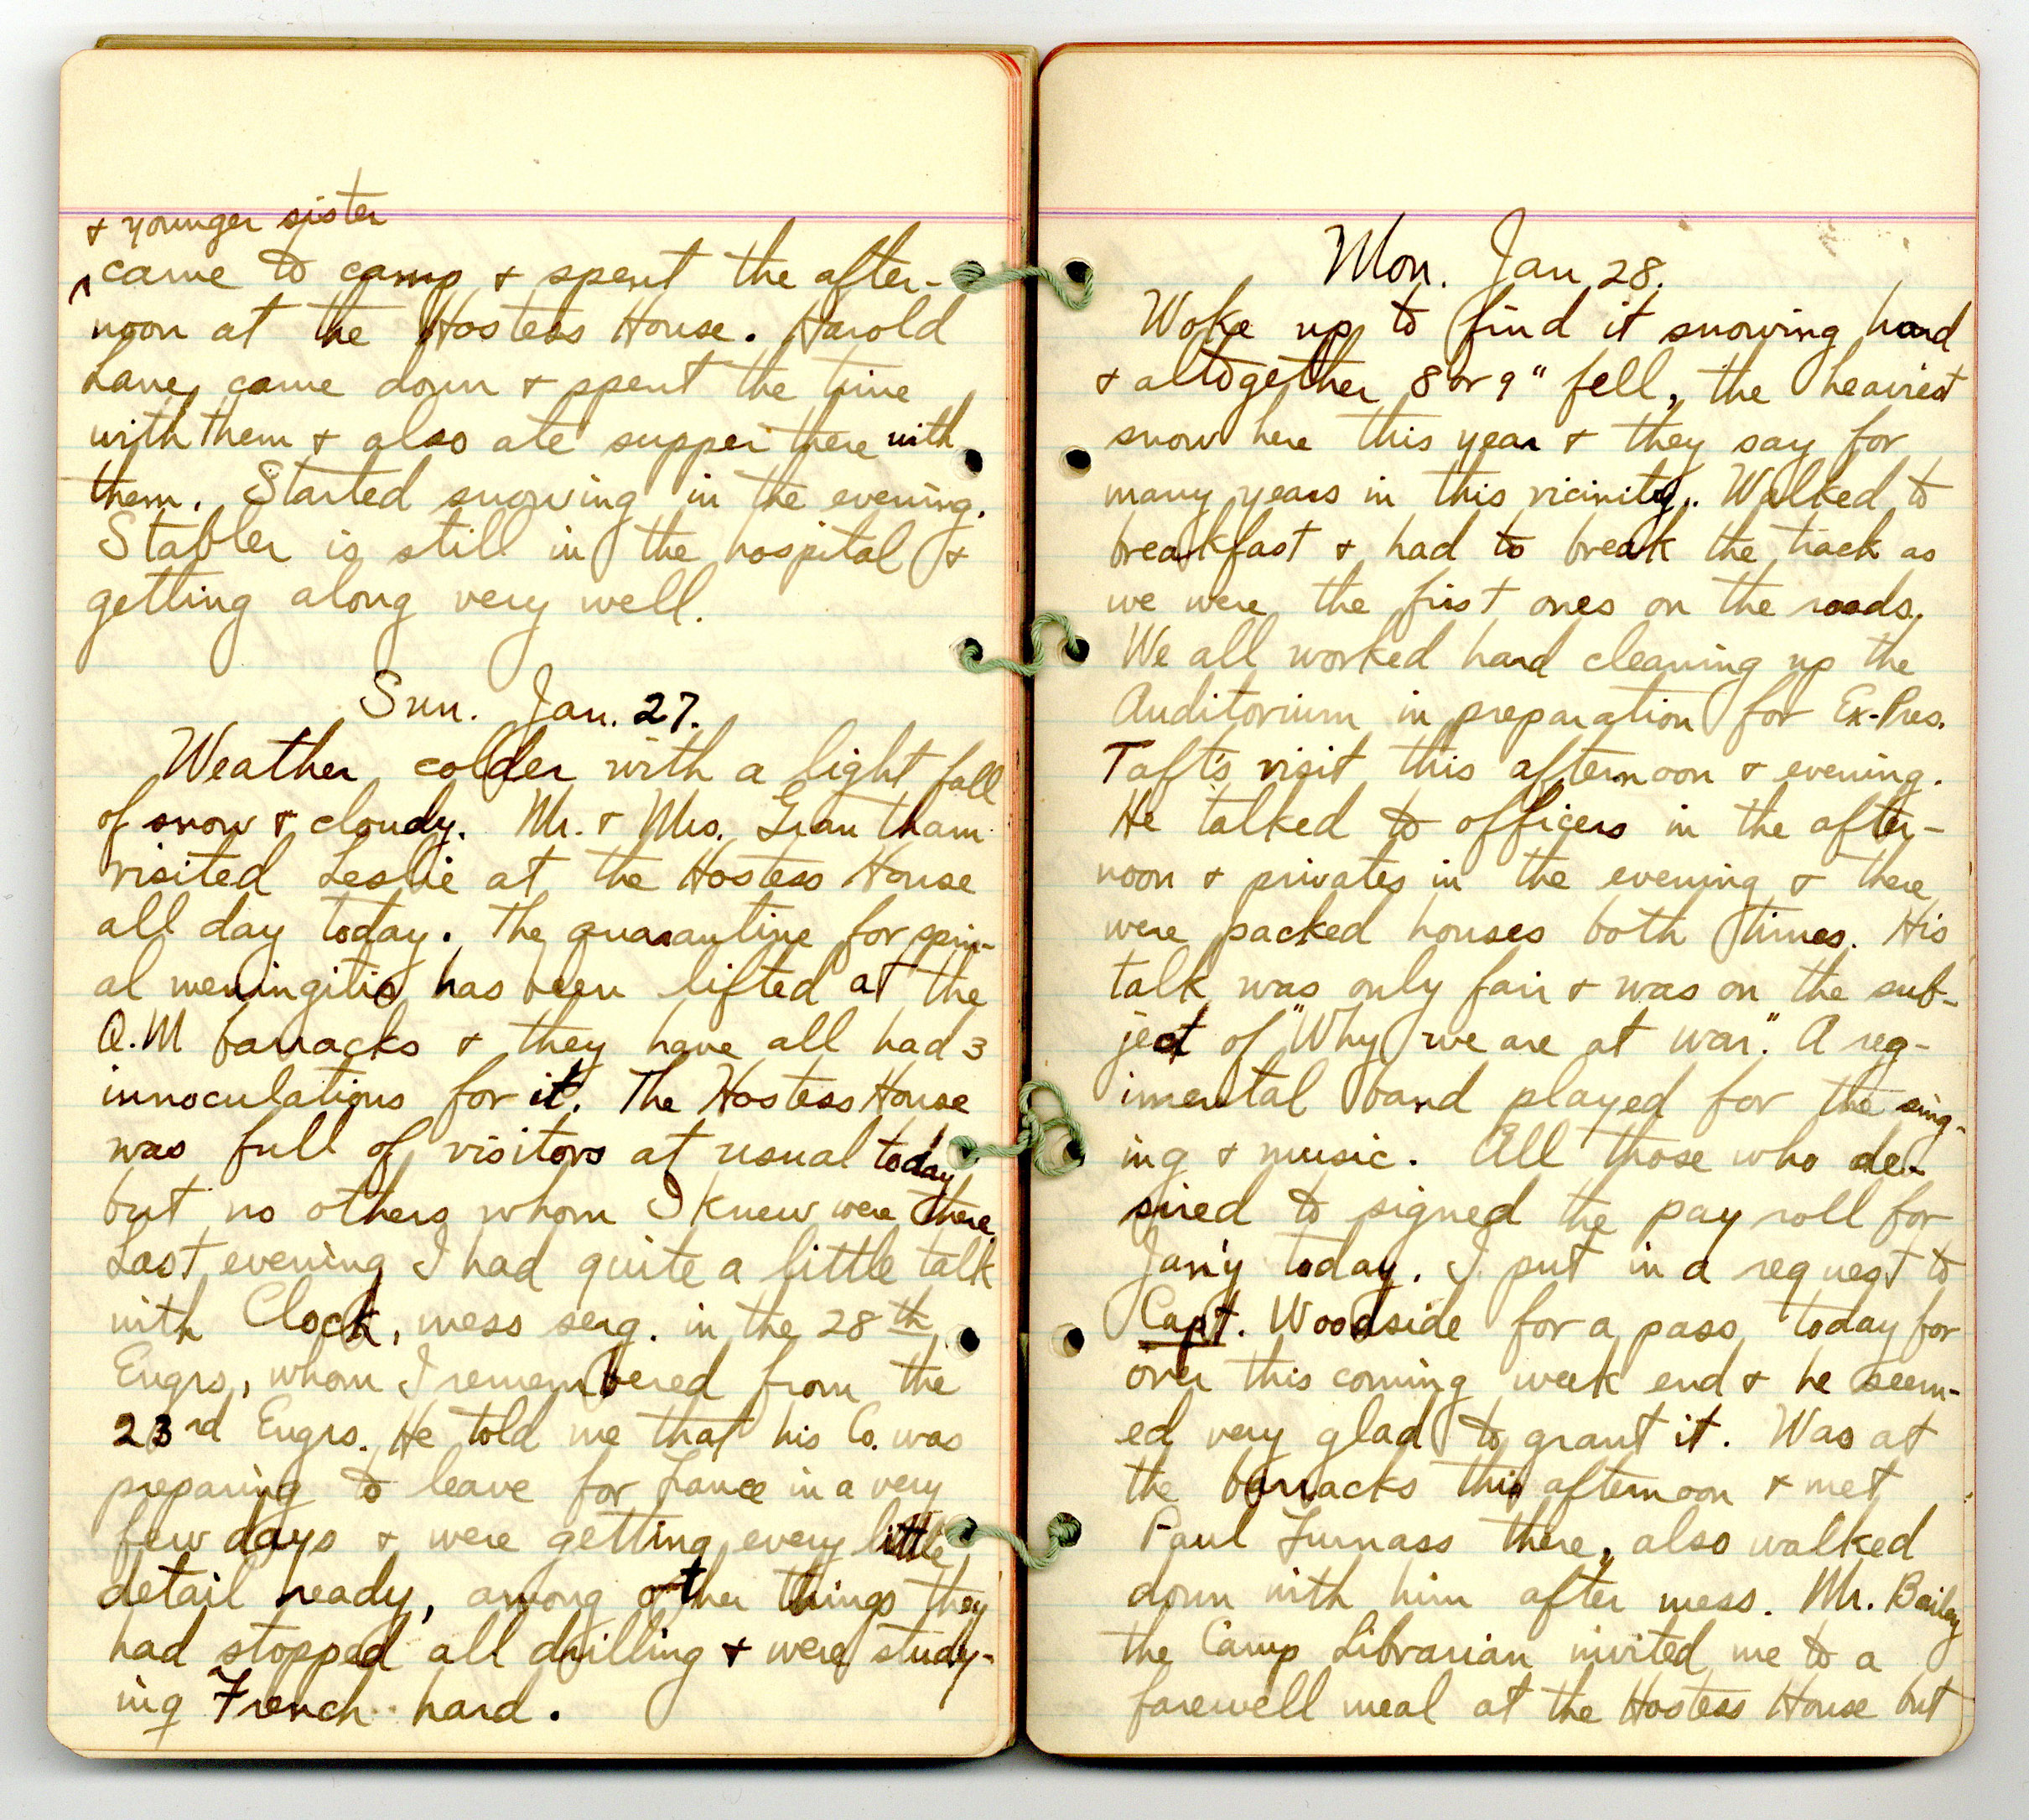 & younger sister
^came to camp & spent the after-
noon at the Hostess House. Harold
Lane, came down & spent the time
with them & also ate supper there with
them. Started snowing in the evening.
Stabler is still in the hospital &
getting along very well.
Sun. Jan. 27.
Weather colder with a light fall
of snow & cloudy. Mr. & Mrs. Grantham
visited Leslie at the Hostess House
all day today. The quarantine for spin-
al meningitis has been lifted at the
Q.M barracks & they have all had 3
innoculations for it. The Hostess House
was full of visitors at usual today
but no others whom I knew were there.
Last evening I had quite a little talk
with Clock, mess serg. in the 28th
Engrs, whom I remembered from the
23rd Engrs. He told me that his Co. was
preparing to leave for France in a very
few days & were getting every little
detail ready, among other things they
had stopped all drilling & were study-
ing French hard.
Mon. Jan 28.
Woke up to find it snowing hard
& altogether 8 or 9" fell, the heaviest
snow here this year & they say for
many years in this vicinity. Walked to
breakfast & had to break the track as
we were the first ones on the roads.
We all worked hard cleaning up the
Auditorium in preparation for Ex-Pres.
Taft's visit this afternoon & evening.
He talked to officers in the after-
noon & privates in the evening & there
were packed houses both times. His
talk was only fair & was on the sub-
ject of "Why we are at war." A reg-
imental band played for the sing-
ing & music. All those who de-
sired to signed the pay roll for
Jan'y today. I put in a request to
Capt. Woodside for a pass today for
over this coming week end & he seem-
ed very glad to grant it. Was at
the barracks this afternoon & met
Paul Furnass there, also walked
down with him after mess. Mr. Bailey
the Camp Librarian invited me to a
farewell meal at the Hostess House but